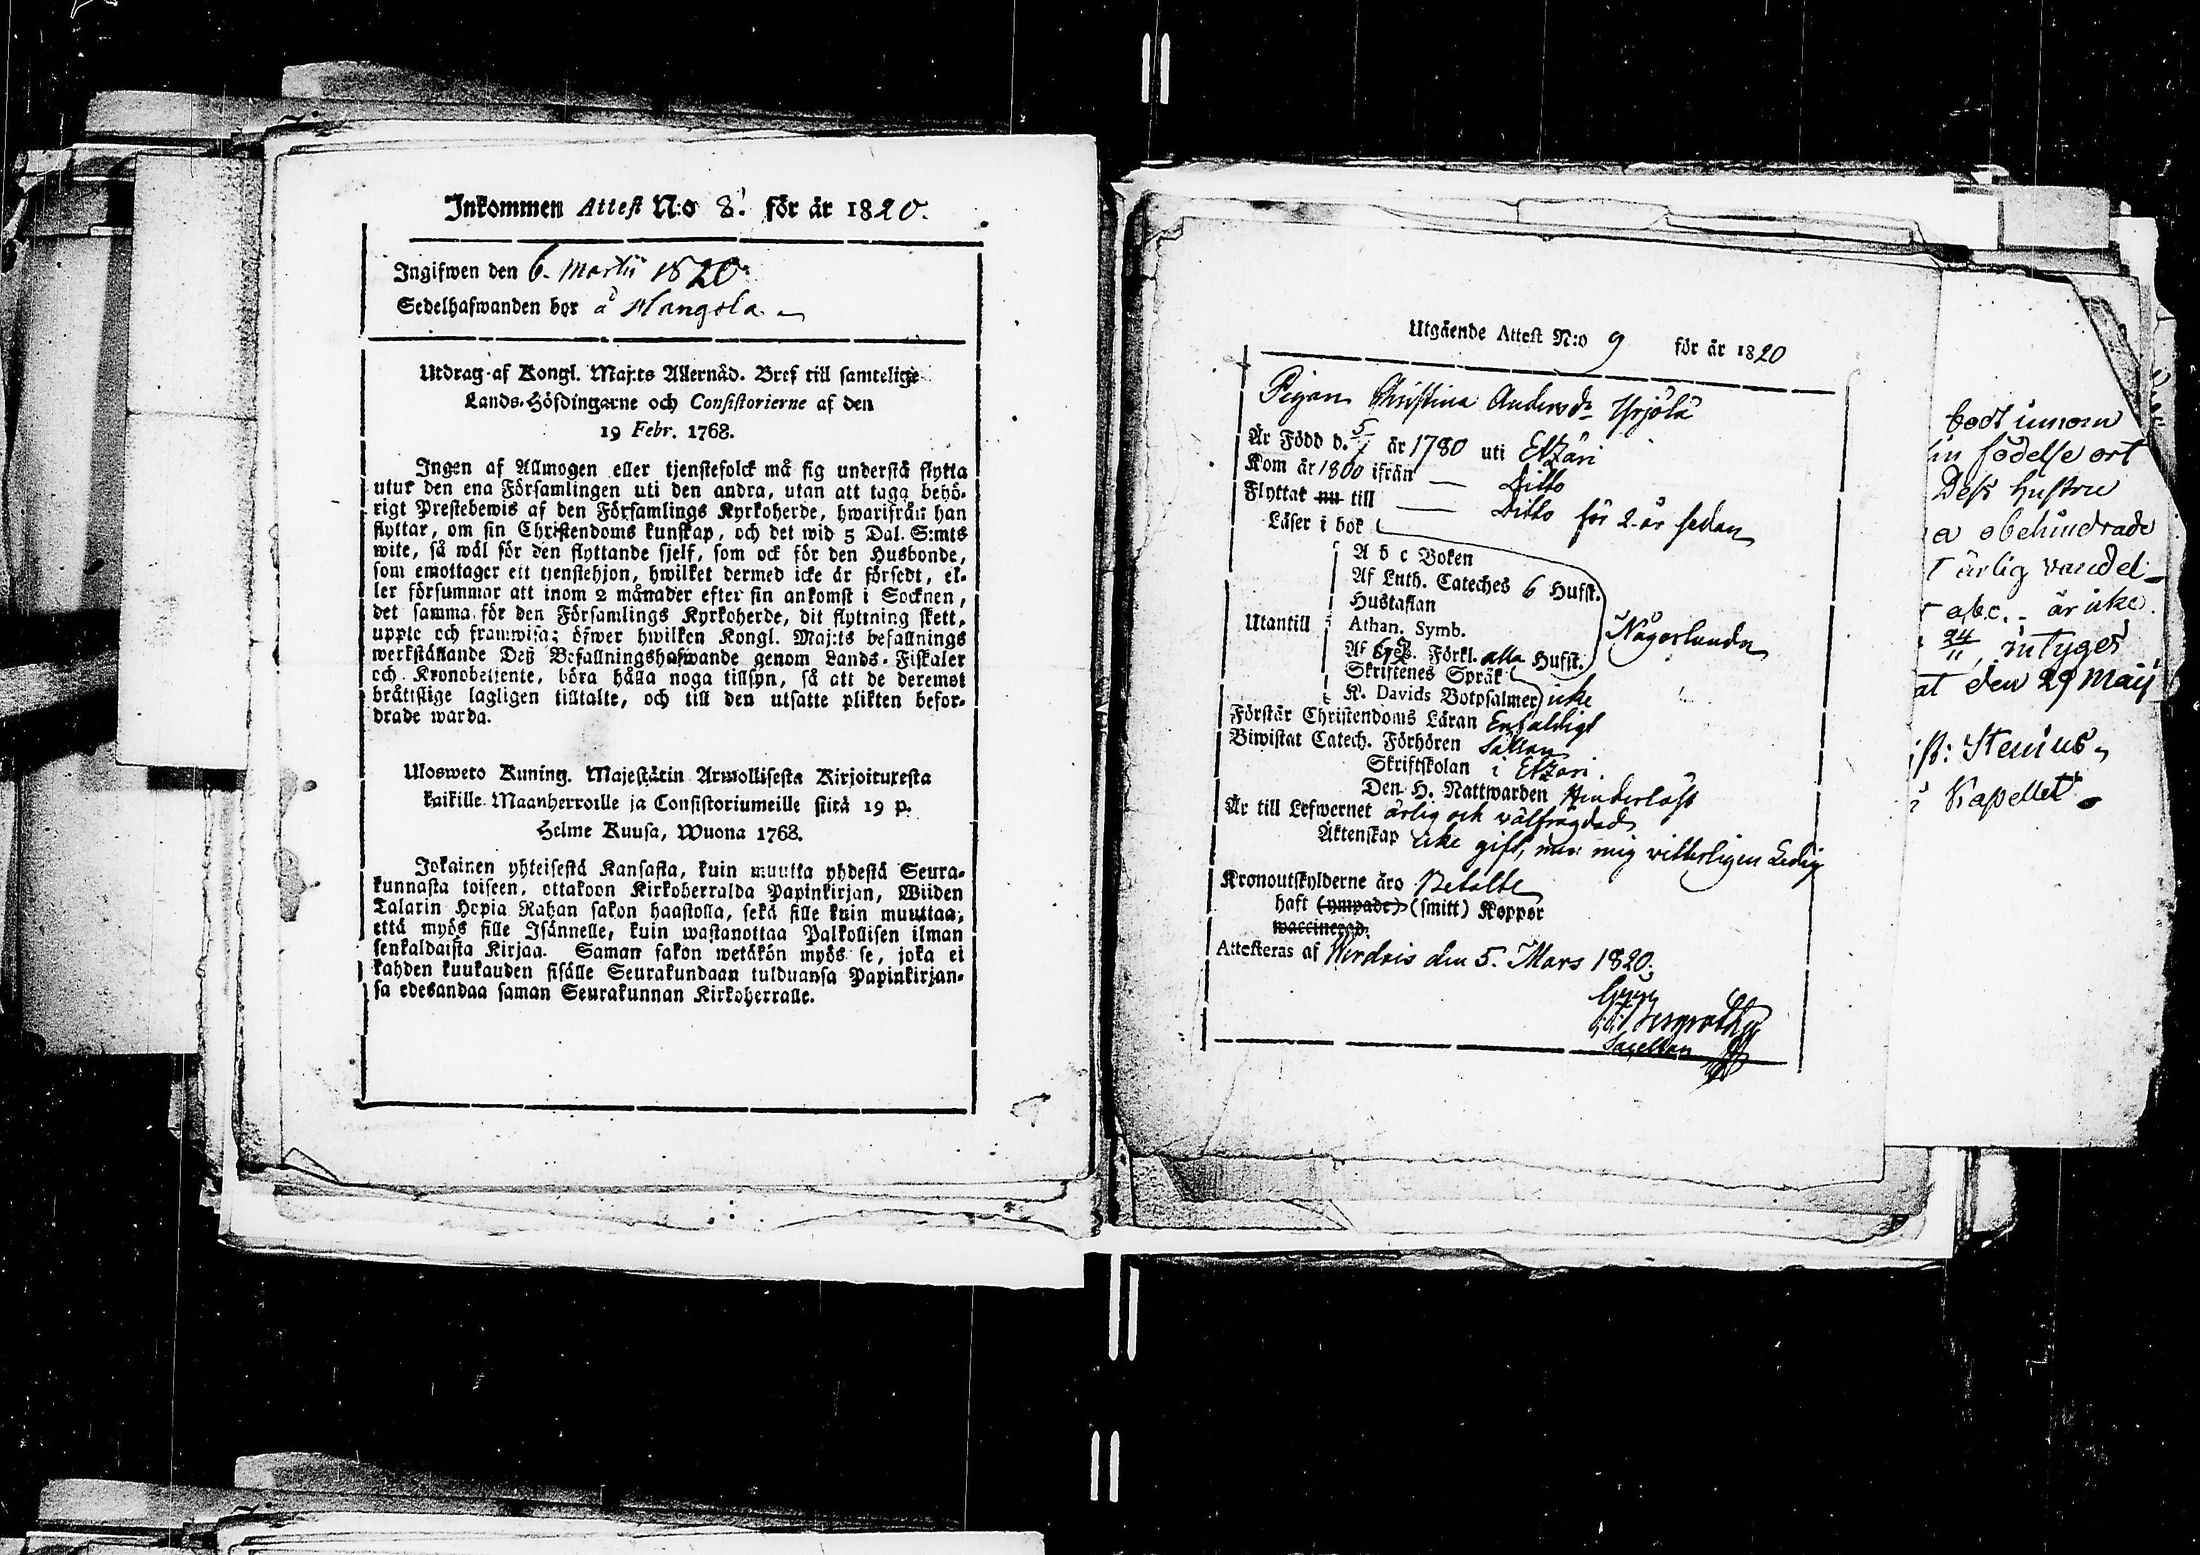 Inkommen Attest N:o 8. för år 1820.
Ingifwen den 6. Martii 1820.
Sedelhafwanden bor å Mangola
Utdrag af Kongl. Maj:ts Allernåd. Bref till samtelige
Lands-Höfdingarne och Consistorierne af den
19 Febr. 1768.
Ingen af Allmogen eller tjenstefolck må sig understå flytta
utur den ena Församlingen uti den andra, utan att taga behö-
rigt Prestebewis af den Församlings Kyrkoherde, hwarifrån han
flyttar, om sin Christendoms kunskap, och det wid 5 Dal. S:mts
wite, så wäl för den flyttande sjelf, som ock för den Husbonde,
som emottager ett tjenstehjon, hwilket dermed icke är försedt, el-
ler försummar att inom 2 månader efter sin ankomst i Socknen,
det samma för den Församlings Kyrkoherde, dit flyttning skett,
uppte och framwisa; öfwer hwilken Kongl. Maj:ts befallnings
werkställande Deß Befallningshafwande genom Lands-Fiskaler
och Kronobetjente, böra hålla noga tillsyn, så att de deremot
bråttslige lagligen tilltalte, och till den utsatte plikten befor-
drade warda.
Ulosweto Kuning. Majestätin Armollisesta Kirjoituxesta
kaikille Maanherroille ja Consistoriumeille siitä 19 p.
Helme Kuusa, Wuona 1768.
Jokainen yhteisestä Kansasta, kuin muutta yhdestä Seura-
kunnasta toiseen, ottakoon Kirkoherralda Papinkirjan, Wiiden
Talarin Hopia Rahan sakon haastolla, sekä sille kuin muuttaa,
että myös sille Isännelle, kuin wastanottaa Palkollisen ilman
senkaldaista Kirjaa. Saman sakon wetäkön myös se, joka ei
kahden kuukauden sisälle Seurakundaan tulduansa Papinkirjan-
sa edesandaa saman Seurakunnan Kirkoherralle.
Utgående Attest N:o 9 för år 1820
Pigan Christina Andersdr Yrjölä
Är Född d. 5/1 år 1780 uti Etzäri
Kom år 1800 ifrån — Ditto
Flyttat nu till — Ditto för 2 år sedan
Läser i bok
A b c Boken
Af Luth. Cateches 6 Hufst.
Hustaflan
Utantill Athan. Symb.
Någorlunda
Af Förkl. alla Hufst.
Skriftenes Språk
K. Davids Botpsalmer icke
Förstår Christendoms Läran Enfaldigt
Biwistat Catech. Förhören Sällan
Skriftskolan i Etzäri.
Den H. Nattwarden Hinderlöst
Är till Lefwernet ärlig och välfrägdad
Äktenskap icke gift, men mig vitterligen Ledig
Kronoutskylderne äro Betalte
haft (ympade) (smitt) Koppor
waccinerad.
Attesteras af Wirdois den 5. Mars 1820.
Sacellan
bodt innom
födelse ort
Dess hustru
a obehindrade
ärlig vandel
abc. är icke
24/11, intyger
at den 29 Maij
Stenius
Kapellet